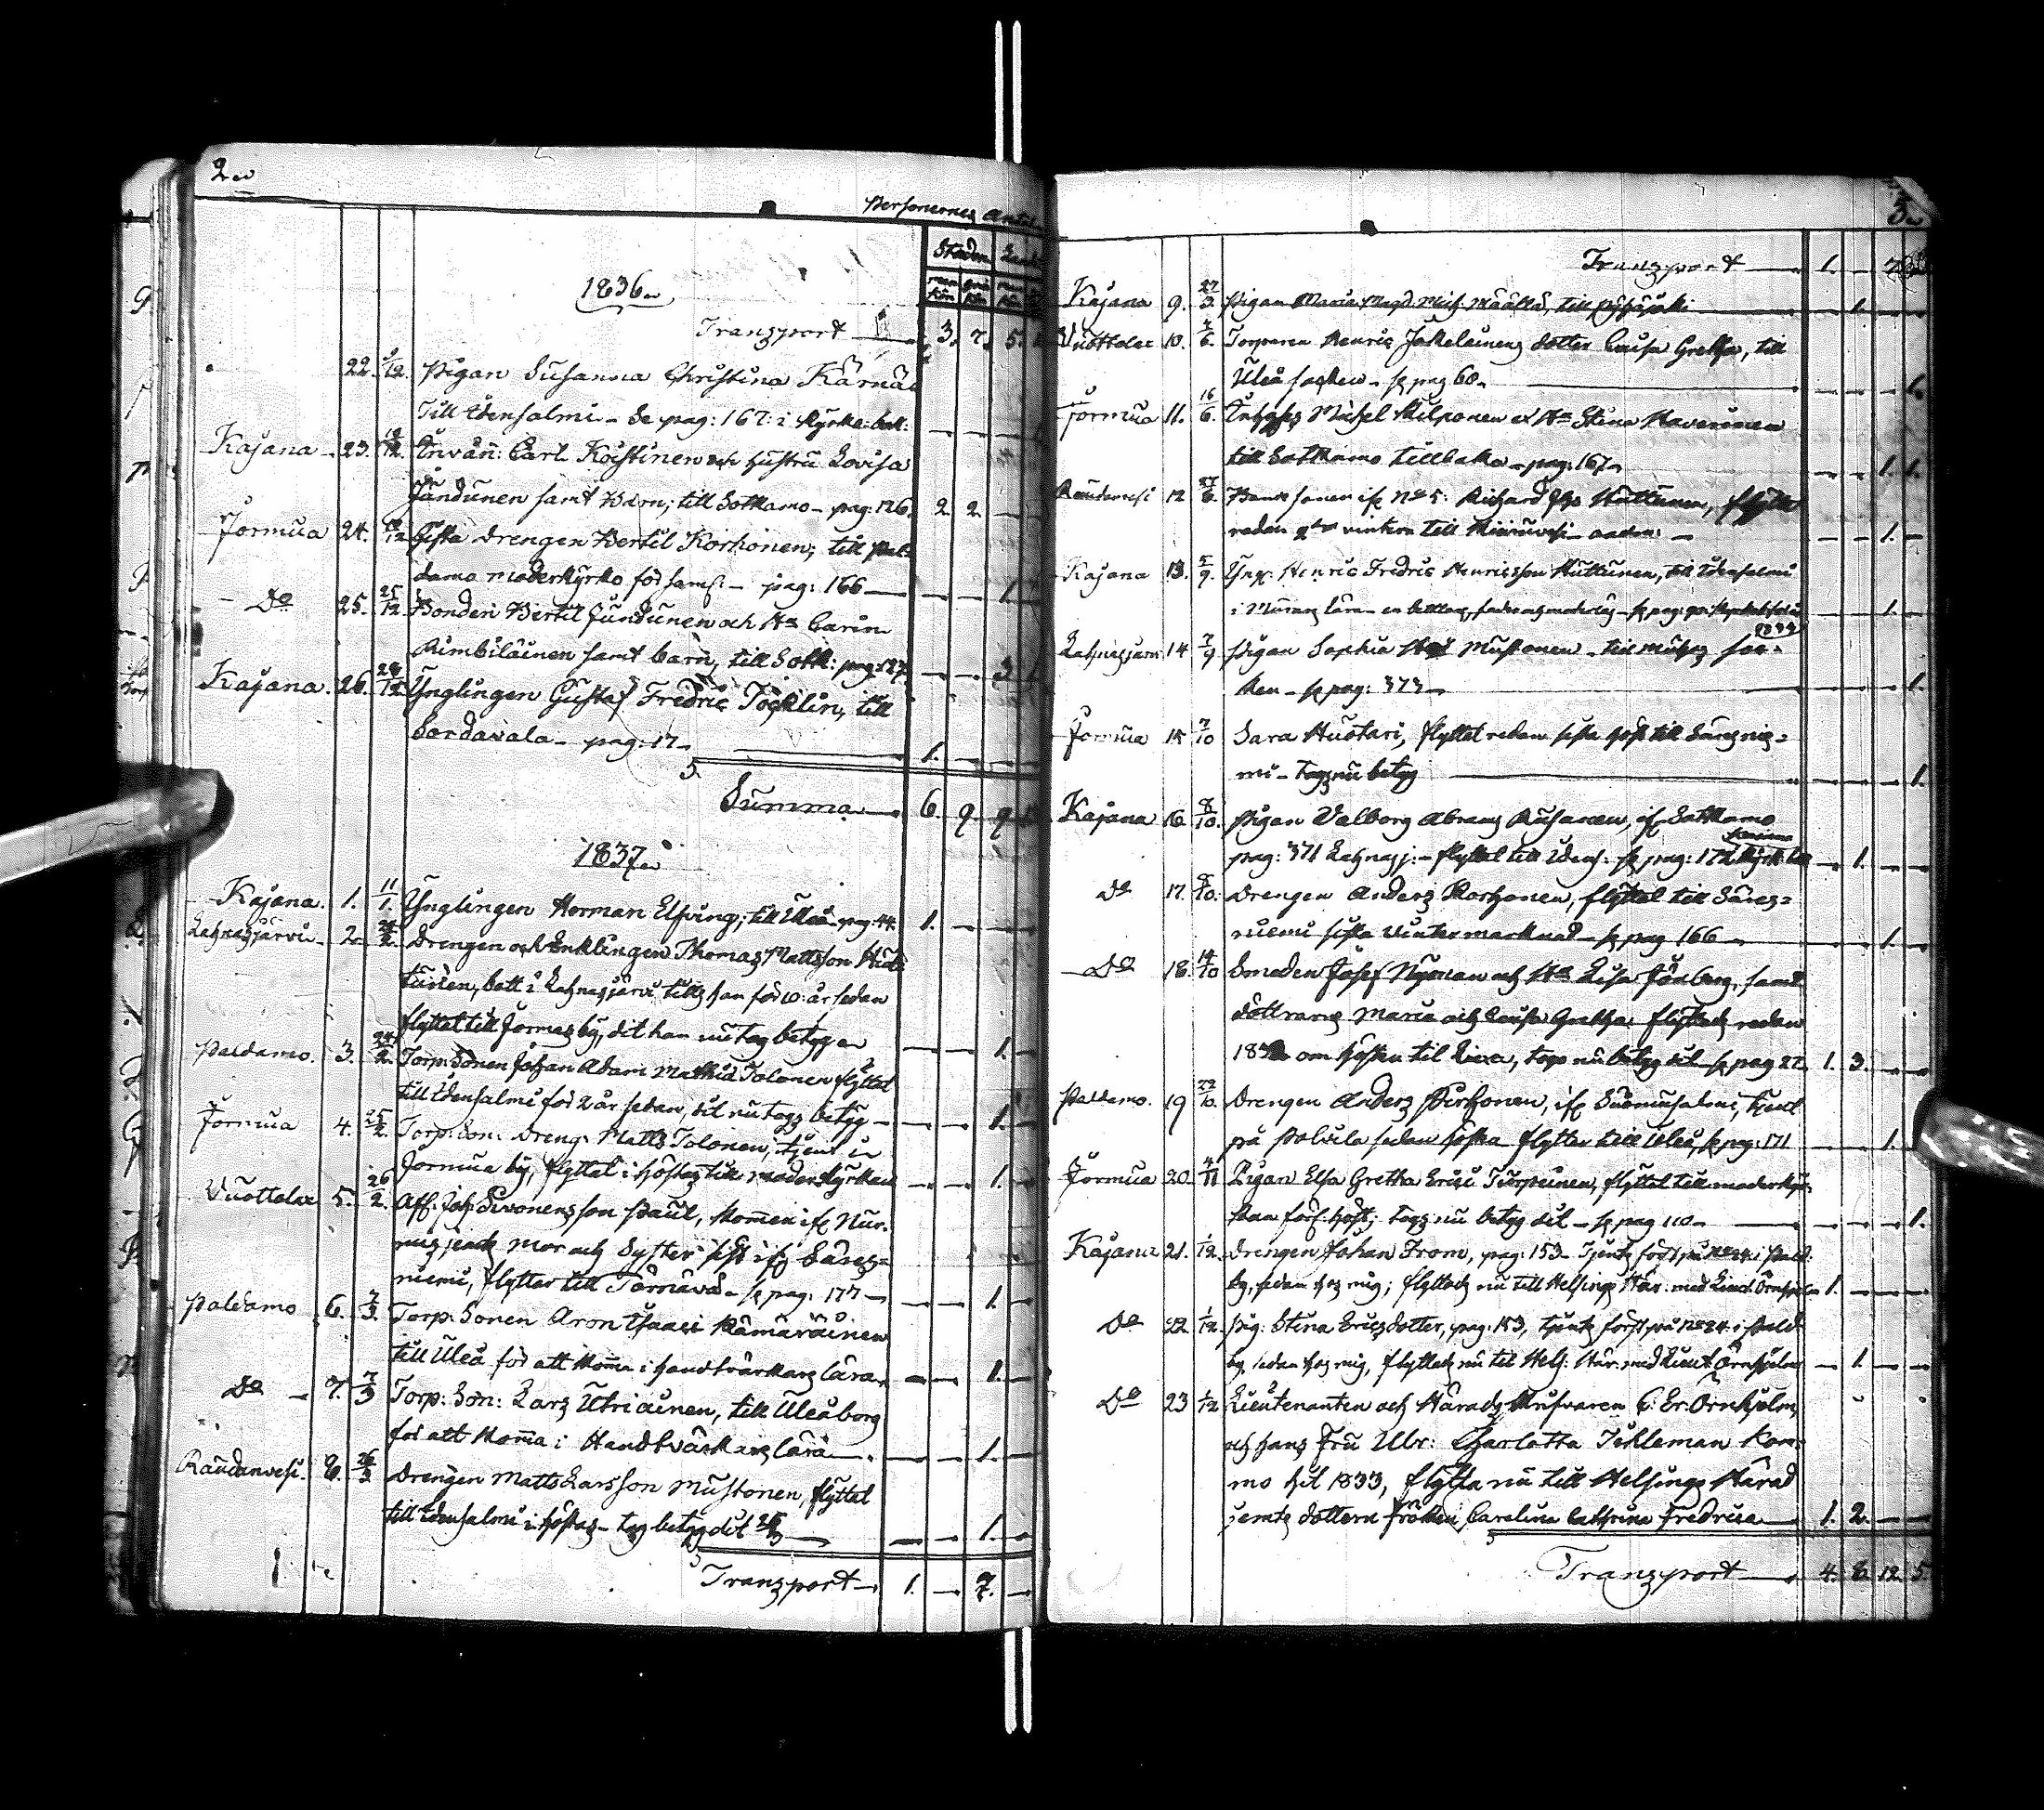 2.
Personernes Antal
Staden Landet
man kön qvin kön man kön
1836.
Transport 3. 7. 5.
22. 9/12. Pigan Susanna Christina Kärnä
till Idensalmi - Se pag: 167: i Kyrko: bok:
Kajana 23. 12/12. Invån: Carl Koistinen och hustru Lovisa
Jundunen samt barn, till Sotkamo - pag: 126. 2. 2.
Jormua 24. 12 Gifta Drengen Bertil Korhonen, till Pal-
damo moderkyrko församl: - pag: 166 1.
Do 25. 25/12 Bonden Bertil Jundunen och Ha Carin
Rimbiläinen samt barn, till Sotk: pag: 127. 3.
Kajana. 26. 28/12 Ynglingen Gustaf Fredric Töcklin, till
Sordavala - pag: 17 - 1.
Summa 6. 9. 9.
1837.
Kajana. 1. 11/1. Ynglingen Herman Elfving, till Uleå - pag: 44. 1.
Lahnasjärvi 2. 2. Drengen och Enklingen Thomas Mattsson Hut-
tunen, bott i Lahnasjärvi tills han för 10: år sedan
flyttat till Jormas by, dit han nu tog betyg 1.
Paldamo. 3. 24/2. Torp: Sonen Johan Adam Tolonen flyttat
till Idensalmi för 2 år sedan, dit nu togs betyg - 1.
Jormua 4. 25/2. Torp: Son: Dreng: Matts Tolonen, tjent i
Jormua by, flyttat i höstas till moderkyrkan 1.
Vuottolax 5. 26/2. Aff: Joh: Sivonens son Paul, kommen if Nur-
mis jemte mor och syster sist if Säres-
niemi, flyttar till Törnävä - se pag: 177 - 1.
Paldamo 6. 7/3. Torp: Sonen Aron Isaac Kämäräinen
till Uleå för att komma i handtvärkars lära 1.
Do - 7. 7/3 Torp: Son: Lars Utriainen, till Uleåborg
för att komma i Handtvärkars lära 1.
Raudanvesi. 8. 26/3 Drengen Matts Larsson Mustonen, flyttat
till Idensalmi i höstas - tog betyg dit 26/3 1.
Transport 1. 7.
3.
Transport 1. - 7.
Kajana 9. 27/3 Pigan Maria Magd. Mich. Määttä, till Pyhäjoki 1.
Vuottolax 10. 6. Torparen Henric Jokelainens dotter Caisa Gretha, till
Uleå socken - se pag 60 - 1.
Jormua 11. 16/6. Inhyses Michel Kilponen och Ha Stina Haverinen
till Sotkamo tillbaka - pag: 167 - 1. 1.
Raudanvesi 12 27/6. Bonde sonen if No 5: Richard Huttunen, flytta
redan vintern till Kiuruvesi 1.
Kajana 13. 5/9. Yng: Henric Fredric Henricsson Huttunen, till Idensalmi
i Murars lära - 1.
Lahnasjärvi 14 7/9 Pigan Sophia Mustonen - till Muhos soc-
ken - se pag: 373 - 1.
Jormua 15 7/10 Sara Huotari, flyttat redan sista höst till Säresnie-
mi - togs nu betyg 1.
Kajana 16 8/10. Pigan Valborg Abrams Rusanen, if Sotkamo
pag: 371 Lahnasj: - flyttat till Idens: se pag: 172 kyrk: bok 1.
Do 17. 8/10: Drengen Anders Korhonen, flyttat till Säres-
niemi sista vinter marknad - se pag 166 - 1.
Do 18. 14/10 Smeden Josef Nyman och Ha Lisa Fönberg, samt
döttrarne Maria och Caisa Gretha flyttade redan
om hösten til Kiexa, togo nu betyg dit - se pag 22. 1. 3.
Paldamo. 19 22/10. Drengen Anders Pirhonen, if Suomusalmi, tjent
på Palvila sedan hösta flytter till Uleå, se pag: 171 1.
Jormua 20. 4/11 Pigan Elsa Gretha Erici Turpeinen, flyttat till moderkyr-
kan förl. höst; togs nu betyg dit - se pag 110 - 1.
Kajana 21. 1/12. Drengen Johan From, pag: 153 - Tjente först på No 24 i Pald:
by, sedan hos mig; flyttade nu till Helsinge Här: med Lieut Örnhjelm 1.
Do 22. 1/12. Pig: Stina Ericsdotter, pag: 153, tjente först på No 24. i Pald:
by, sedan hos mig, flyttade nu til Hels: Här: med Lieut Örnhjelm 1.
Do 23 1/12 Lieutenanten och Härads Skrifvaren C: Er: Örnhjelm,
och hans Fru Ulr: Charlotta Tickleman kom-
mo hit 1833, flytta nu till Helsinge Härad
jemte dottern Fröken Carolina Cathrina Fredrica 1. 2.
Transport 4. 8. 12. 5.